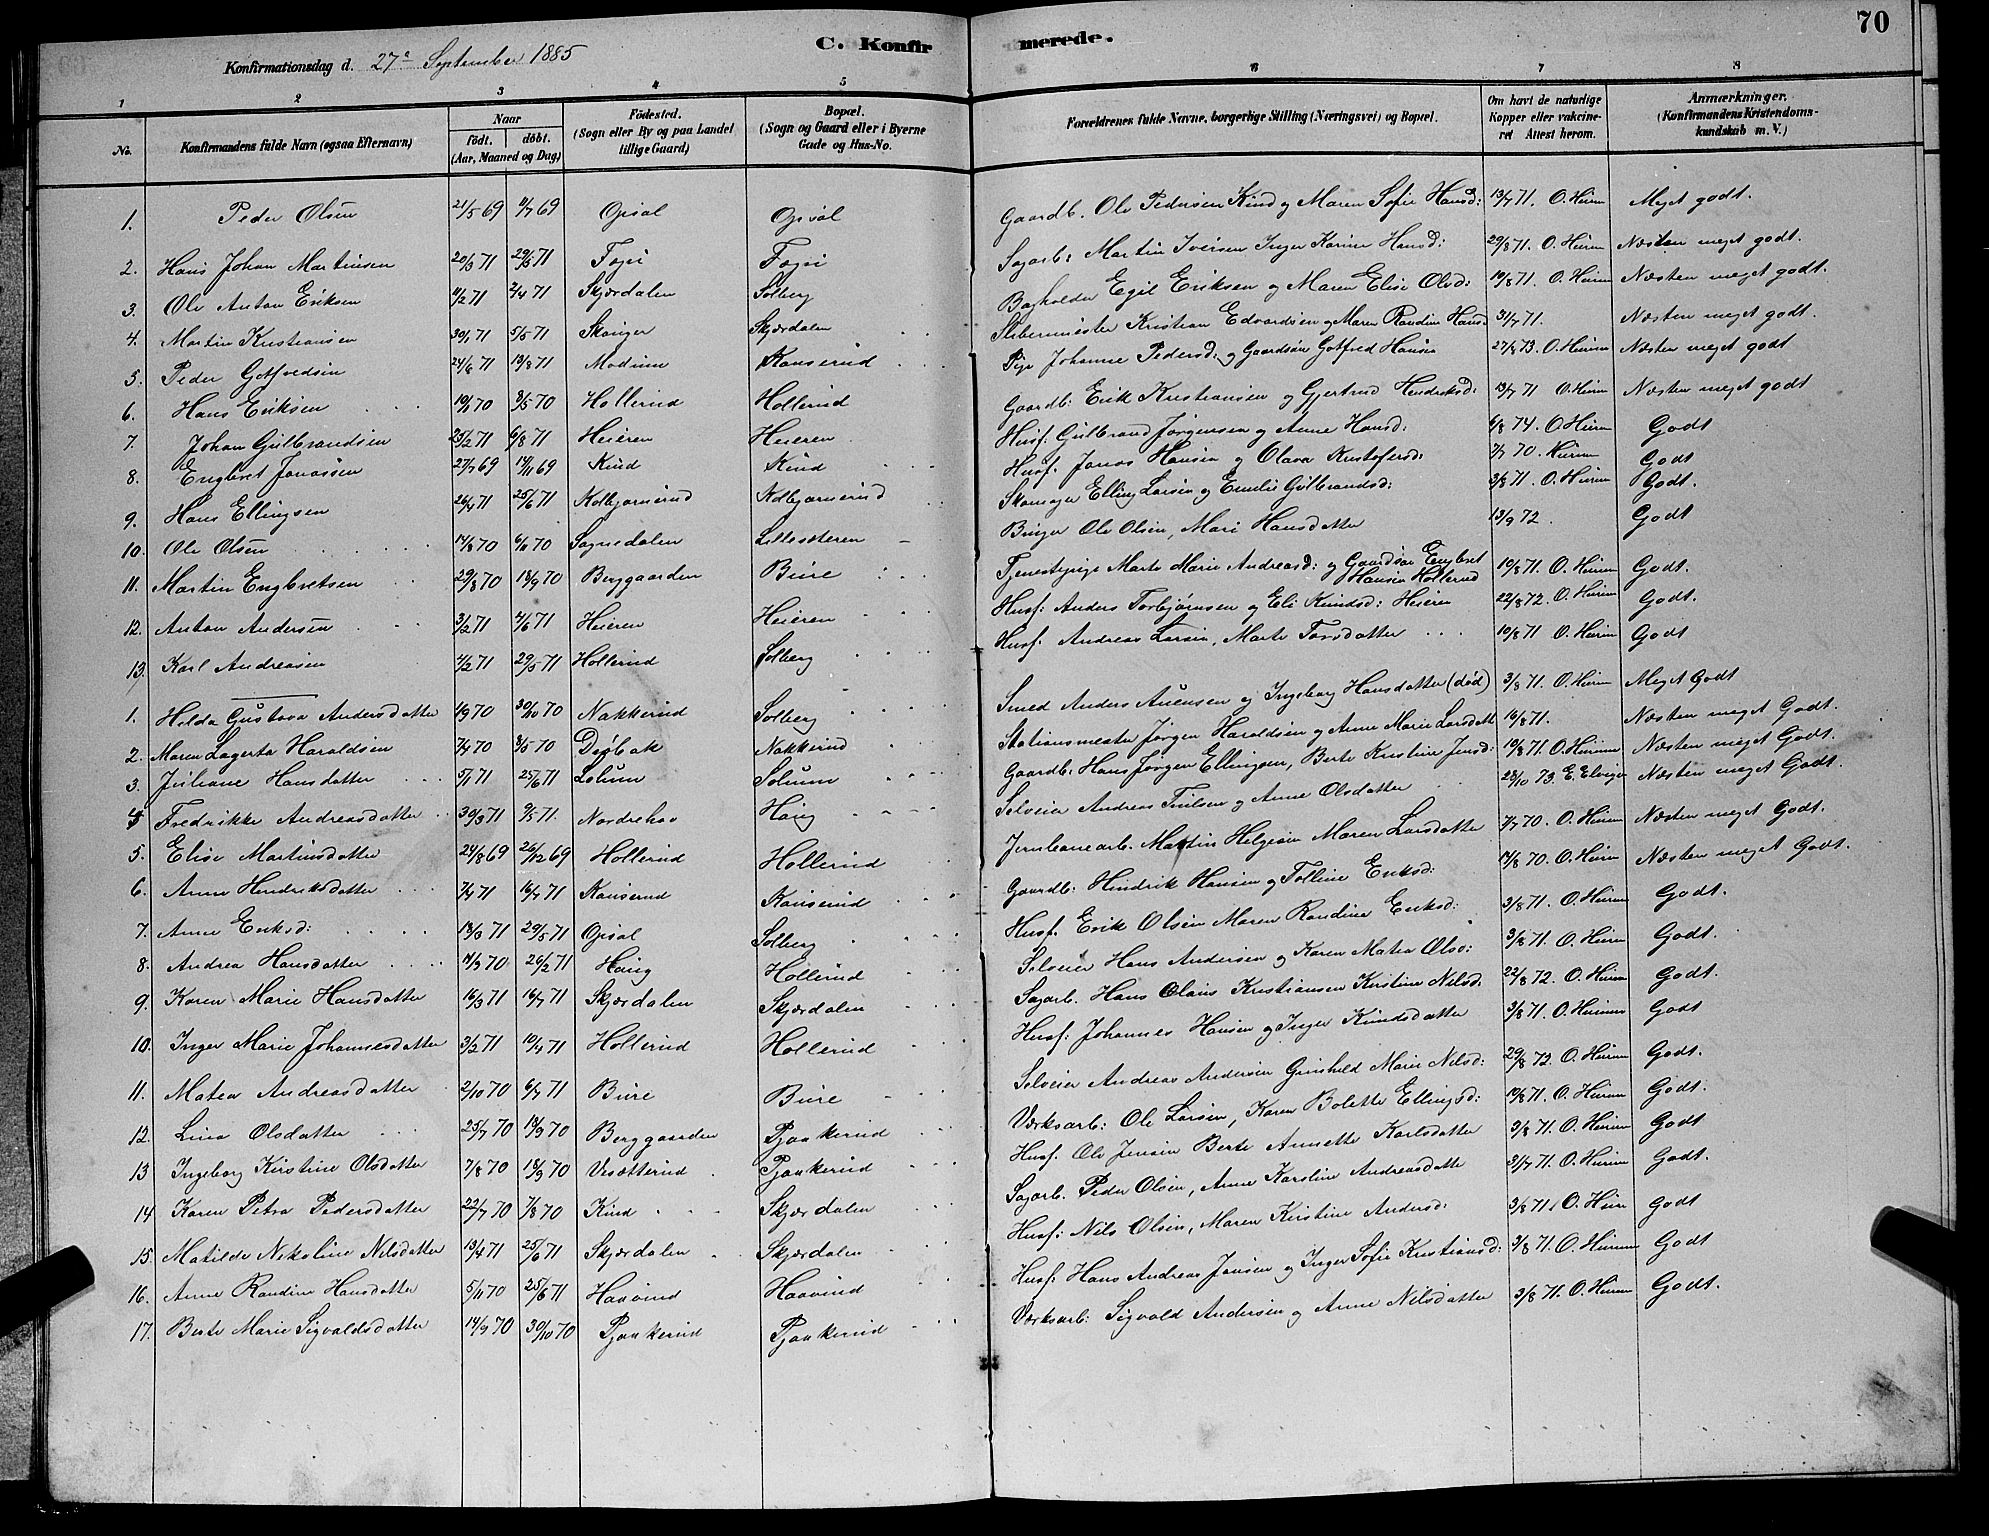 70
C. Konfirmerede.
Konfirmationsdag d. 27de September 1885
1 2 3 4 5 6 7 8
No. Konfirmandens fulde Navn (ogsaa Efternavn) Naar født. døbt. (Aar, Maaned og Dag) Fødested. (Sogn eller By og paa Landet tillige Gaard) Bopæl. (Sogn og Gaard eller i Byerne Gade og Hus-No. Forældrenes fulde Navne, borgerlige Stilling (Næringsvei) og Bopæl. Om havt de naturlige Kopper eller vakcineret Attest herom. Anmærkninger. (Konfirmandens Kristendomskundskab m. V.)
1. Peder Olsen 21/5 69 4/7 69 Opsal Opsal Gaardb. Ole Pedersen Kind og Maren Sofie Hansd: 13/7 71. O. Heiren Meget godt.
2. Hans Johan Martinsen 20/3 71 29/5 71 Fogsi Fogsi Sagarb: Martin Iversen Inger Karine Hansd: 29/8 71. O. Heiren Næsten meget godt.
3. Ole Anton Eriksen 11/2 71 2/4 71 Skjærdalen Solberg Bogholder Egil Eriksen og Maren Elise Olsd: 10/8 71. O. Heiren Næsten meget godt.
4. Martin Kristiansen 30/1 71 5/5 71 Skonger Skjærdalen Slibermester Kristian Edvardsen og Maren Randine Hansd 31/7 71. Næsten meget godt.
5. Peder Gotfredsen 24/6 71 13/8 71 Modum Kanserud Pige Johanne Pedersd: og Gaardsøn Gotfred Hansen 27/8 73. O. Heiren Næsten meget godt
6. Hans Eriksen 19/1 70 3/5 70 Hollerud Hollerud Gaardb: Erik Kristiansen og Gjertrud Hendriksd: 13/7 71 O. Heiren Næsten meget godt
7. Johan Gulbrandsen 25/2 71 6/8 71 Heieren Heieren Husf: Gulbrand Jørgensen og Anne Hansd: 4/8 74. O Heiren Godt
8. Engbret Jonassen 27/7 69 14/11 69 Kind Kind Husf. Jonas Hansen og Olava Kristofersd: 7/7 70. Heiren Godt
9. Hans Ellingsen 26/4 71 25/6 71 Kolbjørnrud Kolbjørnerud Skomager Elling Larsen og Emilie Gulbrandsd: 3/8 71. O. Heiren Godt.
10. Ole Olsen 14/8 70 6/11 70 Sognedalen Lillesæteren Ole Olsen, Mari Hansdatter 13/9 72. Godt
11. Martin Engbretsen 29/8 70 18/9 70 Berggaarden Bure Tjenestepige Marte Marie Andreasd: og Gaardsøn Engbret Hansen Hollerud 10/8 71. O. Heiren Godt.
12. Anton Andersen 3/2 71 4/6 71 Heieren Heieren Husf: Anders Torbjørnsen og Eli Knudsd: Heieren 22/8 72. O. Heiren Godt.
13. Karl Andreasen 4/2 71 29/5 71 Hollerud Solberg Husf Andreas Larsen, Marte Torsdatter 10/8 71 O. Heiren Godt
1. Helda Gustava Andersdatter 1/9 70 30/10 70 Nakkerud Solberg Smed Anders Auensen og Ingeborg Hansdatter (død) 3/8 71. O. Heiren Meget Godt
2. Maren Lagerta Haraldsen 7/4 70 8/5 70 Drøbak Nakkerud Stationsmester Jørgen Haraldsen og Anne Marie Larsdatt 16/8 71. Næsten meget Godt.
3. Juliane Hansdatter 5/1 71 25/6 71 Solum Solum Gaardb: Hans Jørgen Ellingsen, Berte Kristine Jensd: 10/8 71. O. Heiren Næsten meget Godt.
4 Fredrikke Andreasdatter 30/3 71 9/5 71. Nordrehov Haug Selveier Andreas Truelsen og Anne Olsdatter 23/10 73. E. Elvigen Næsten meget Godt.
5. Elise Martinsdatter 24/8 69 26/12 69 Hollerud Hollerud Jernbanearb. Martin Helgesen Maren Larsdatter 7/7 70. O. Heiren Næsten meget Godt.
6. Anne Hendriksdatter 7/4 71 16/7 71 Kanserud Kanserud Gaardb: Hindrik Hansen og Tolline Eriksd: 14/8 70. O. Heiren Næsten meget Godt.
7. Anne Eriksd: 18/3 71 29/5 71 Opsal Solberg Husf. Erik Olsen Maren Randine Eriksd: 3/8 71. O. Heiren Godt.
8. Andrea Hansdatter 14/9 70 26/2 71 Haug Hollerud Selveier Hans Andersen og Karen Matea Olsd: 3/8 71. O. Heiren Godt.
9. Karen Marie Hansdatter 16/3 71 16/7 71 Skjærdalen Skjærdalen Sagarb. Hans Olaus Kristiansen Kristine Nilsd. 22/8 72. O. Heiren Godt.
10. Inger Marie Johannesdatter 3/2 71 10/4 71 Hollerud Hollerud Husf: Johannes Hansen og Inger Knudsdatter 3/8 71. O. Heiren Godt
11. Matea Andreasdatter 2/10 70 6/7 71 Bure Bure Selveier Andreas Andersen Gunhild Marie Nilsd: 29/8 72. O. Heiren Godt.
12. Lina Olsdatter 25/7 70 18/9 70 Berggaarden Pjaakerud Værksarb: Ole Larsen, Karen Bolette Ellingsd: 10/8 71. O. Heiren Godt.
13 Ingeborg Kirstine Olsdatter 7/8 70 18/9 70 Vesætterud Pjaakerud Husf. Ole Jensen Berte Annette Karlsdatter 3/8 71. O. Heiren Godt
14 Karen Petra Pedersdatter 22/7 70 7/8 70 Kind Skjærdalen Sagarb. Peder Olsen, Anne Karoline Andreasdatter 31/7 71. O. Heiren Godt.
15. Matilde Nikoline Nilsdatter 13/4 71 25/6 71 Skjærdalen Skjærdalen Husf: Nils Olsen, Maren Kirstine Andersd: 3/8 71. O. Heiren Godt
16. Anne Randine Hansdatter 5/11 70 25/6 71 Haavind Haavind Husf: Hans Andreas Jensen og Inger Sofie Kristiansd: 3/8 71. O. Heiren Godt
17. Berte Marie Sigvaldsdatter 14/9 70 30/10 70 Pjaakerud Pjaakerud Værksarb: Sigvald Andersen og Anne Nilsdatter 3/8 71. O. Heiren Godt.